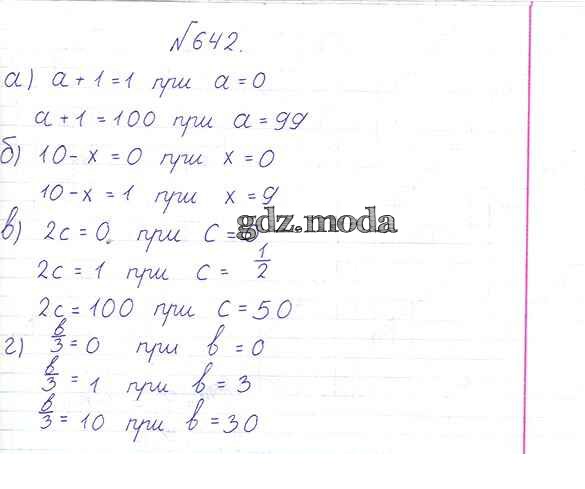 №642.
а) а + 1 = 1 при а = 0
а + 1 = 100 при а = 99
б) 10 - х = 0 при х = 0
10 - х = 1 при х = 9
в) 2с = 0 при с =
gdz.moda
2с = 1 при с = 1/2
2с = 100 при с = 50
г) в/3 = 0 при в = 0
в/3 = 1 при в = 3
в/3 = 10 при в = 30